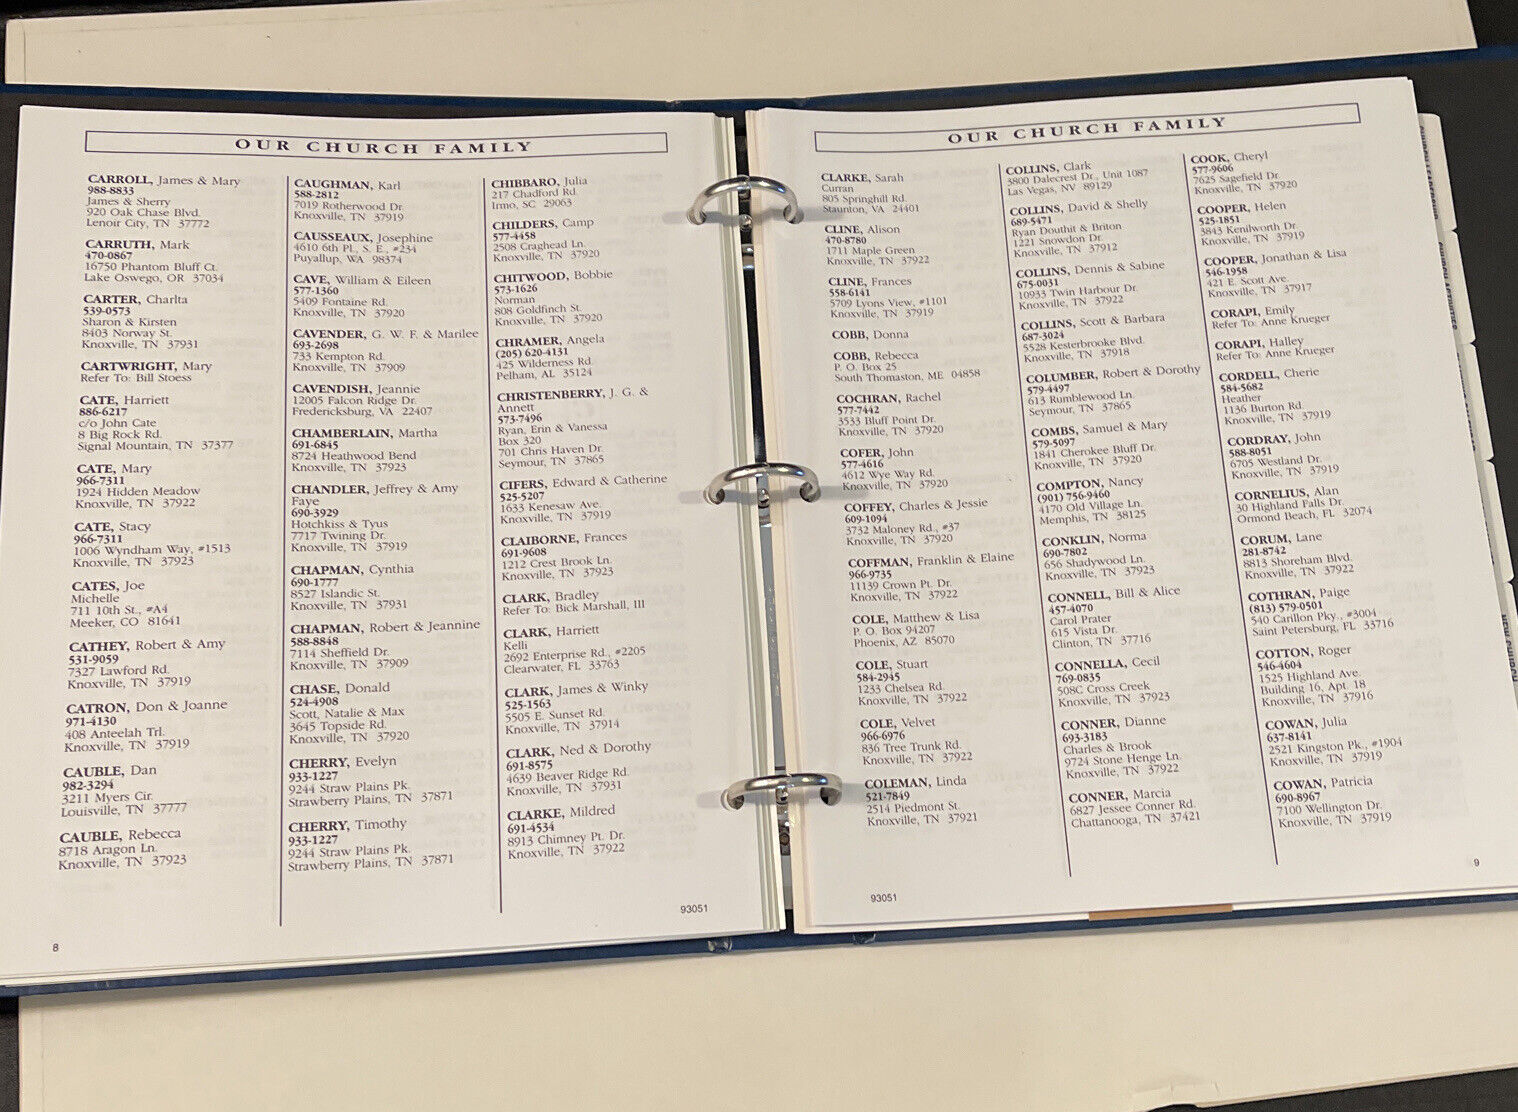 OUR CHURCH FAMILY
CARROLL, James & Mary
988-8833
James & Sherry
920 Oak Chase Blvd.
Lenoir City, TN 37772
CARRUTH, Mark
470-0867
16750 Phantom Bluff Ct.
Lake Oswego, OR 37034
CARTER, Charlta
539-0573
Sharon & Kirsten
8403 Norway St.
Knoxville, TN 37931
CARTWRIGHT, Mary
Refer To: Bill Stoess
CATE, Harriett
886-6217
c/o John Cate
8 Big Rock Rd.
Signal Mountain, TN 37377
CATE, Mary
966-7311
1924 Hidden Meadow
Knoxville, TN 37922
CATE, Stacy
966-7311
1006 Wyndham Way, #1513
Knoxville, TN 37923
CATES, Joe
Michelle
711 10th St., #A4
Meeker, CO 81641
CATHEY, Robert & Amy
531-9059
7327 Lawford Rd.
Knoxville, TN 37919
CATRON, Don & Joanne
971-4130
408 Anteelah Trl.
Knoxville, TN 37919
CAUBLE, Dan
982-3294
3211 Myers Cir.
Louisville, TN 37777
CAUBLE, Rebecca
8718 Aragon Ln.
Knoxville, TN 37923
CAUGHMAN, Karl
588-2812
7019 Rotherwood Dr.
Knoxville, TN 37919
CAUSSEAUX, Josephine
4610 6th Pl., S. E., #234
Puyallup, WA 98374
CAVE, William & Eileen
577-1360
5409 Fontaine Rd.
Knoxville, TN 37920
CAVENDER, G. W. F. & Marilee
693-2698
733 Kempton Rd.
Knoxville, TN 37909
CAVENDISH, Jeannie
12005 Falcon Ridge Dr.
Fredericksburg, VA 22407
CHAMBERLAIN, Martha
691-6845
8724 Heathwood Bend
Knoxville, TN 37923
CHANDLER, Jeffrey & Amy
Faye
690-3929
Hotchkiss & Tyus
7717 Twining Dr.
Knoxville, TN 37919
CHAPMAN, Cynthia
690-1777
8527 Islandic St.
Knoxville, TN 37931
CHAPMAN, Robert & Jeannine
588-8848
7114 Sheffield Dr.
Knoxville, TN 37909
CHASE, Donald
524-4908
Scott, Natalie & Max
3645 Topside Rd.
Knoxville, TN 37920
CHERRY, Evelyn
933-1227
9244 Straw Plains Pk.
Strawberry Plains, TN 37871
CHERRY, Timothy
933-1227
9244 Straw Plains Pk.
Strawberry Plains, TN 37871
CHIBBARO, Julia
217 Chadford Rd.
Irmo, SC 29063
CHILDERS, Camp
577-4458
2508 Craghead Ln.
Knoxville, TN 37920
CHITWOOD, Bobbie
573-1626
Norman
808 Goldfinch St.
Knoxville, TN 37920
CHRAMER, Angela
(205) 620-4131
425 Wilderness Rd.
Pelham, AL 35124
CHRISTENBERRY, J. G. &
Annett
573-7496
Ryan, Erin & Vanessa
Box 320
701 Chris Haven Dr.
Seymour, TN 37865
CIFERS, Edward & Catherine
525-5207
1633 Kenesaw Ave.
Knoxville, TN 37919
CLAIBORNE, Frances
691-9608
1212 Crest Brook Ln.
Knoxville, TN 37923
CLARK, Bradley
Refer To: Bick Marshall, III
CLARK, Harriett
Kelli
2692 Enterprise Rd., #2205
Clearwater, FL 33763
CLARK, James & Winky
525-1563
5505 E. Sunset Rd.
Knoxville, TN 37914
CLARK, Ned & Dorothy
691-8575
4639 Beaver Ridge Rd.
Knoxville, TN 37931
CLARKE, Mildred
691-4534
8913 Chimney Pt. Dr.
Knoxville, TN 37922
93051
8
OUR CHURCH FAMILY
CLARKE, Sarah
Curran
805 Springhill Rd.
Staunton, VA 24401
CLINE, Alison
470-8780
1711 Maple Green
Knoxville, TN 37922
CLINE, Frances
558-6141
5709 Lyons View, #1101
Knoxville, TN 37919
COBB, Donna
COBB, Rebecca
P. O. Box 25
South Thomaston, ME 04858
COCHRAN, Rachel
577-7442
3533 Bluff Point Dr.
Knoxville, TN 37920
COFER, John
577-4616
4612 Wye Way Rd.
Knoxville, TN 37920
COFFEY, Charles & Jessie
609-1094
3732 Maloney Rd., #37
Knoxville, TN 37920
COFFMAN, Franklin & Elaine
966-9735
11139 Crown Pt. Dr.
Knoxville, TN 37922
COLE, Matthew & Lisa
P. O. Box 94207
Phoenix, AZ 85070
COLE, Stuart
584-2945
1233 Chelsea Rd.
Knoxville, TN 37922
COLE, Velvet
966-6976
836 Tree Trunk Rd.
Knoxville, TN 37922
COLEMAN, Linda
521-7849
2514 Piedmont St.
Knoxville, TN 37921
COLLINS, Clark
3800 Dalecrest Dr., Unit 1087
Las Vegas, NV 89129
COLLINS, David & Shelly
689-5471
Ryan Douthit & Briton
1221 Snowdon Dr.
Knoxville, TN 37912
COLLINS, Dennis & Sabine
675-0031
10933 Twin Harbour Dr.
Knoxville, TN 37922
COLLINS, Scott & Barbara
687-3024
5528 Kesterbrooke Blvd.
Knoxville, TN 37918
COLUMBER, Robert & Dorothy
579-4497
613 Rumblewood Ln.
Seymour, TN 37865
COMBS, Samuel & Mary
579-5097
1841 Cherokee Bluff Dr.
Knoxville, TN 37920
COMPTON, Nancy
(901) 756-9460
4170 Old Village Ln.
Memphis, TN 38125
CONKLIN, Norma
690-7802
656 Shadywood Ln.
Knoxville, TN 37923
CONNELL, Bill & Alice
457-4070
Carol Prater
615 Vista Dr.
Clinton, TN 37716
CONNELLA, Cecil
769-0835
508C Cross Creek
Knoxville, TN 37923
CONNER, Dianne
693-3183
Charles & Brook
9724 Stone Henge Ln.
Knoxville, TN 37922
CONNER, Marcia
6827 Jessee Conner Rd.
Chattanooga, TN 37421
COOK, Cheryl
577-9606
7625 Sagefield Dr.
Knoxville, TN 37920
COOPER, Helen
525-1851
3843 Kenilworth Dr.
Knoxville, TN 37919
COOPER, Jonathan & Lisa
546-1958
421 E. Scott Ave.
Knoxville, TN 37917
CORAPI, Emily
Refer To: Anne Krueger
CORAPI, Halley
Refer To: Anne Krueger
CORDELL, Cherie
584-5682
Heather
1136 Burton Rd.
Knoxville, TN 37919
CORDRAY, John
588-8051
6705 Westland Dr.
Knoxville, TN 37919
CORNELIUS, Alan
30 Highland Falls Dr.
Ormond Beach, FL 32074
CORUM, Lane
281-8742
8813 Shoreham Blvd.
Knoxville, TN 37922
COTHRAN, Paige
(813) 579-0501
540 Carillon Pky., #3004
Saint Petersburg, FL 33716
COTTON, Roger
546-4604
1525 Highland Ave.
Building 16, Apt. 18
Knoxville, TN 37916
COWAN, Julia
637-8141
2521 Kingston Pk., #1904
Knoxville, TN 37919
COWAN, Patricia
690-8967
7100 Wellington Dr.
Knoxville, TN 37919
93051
9